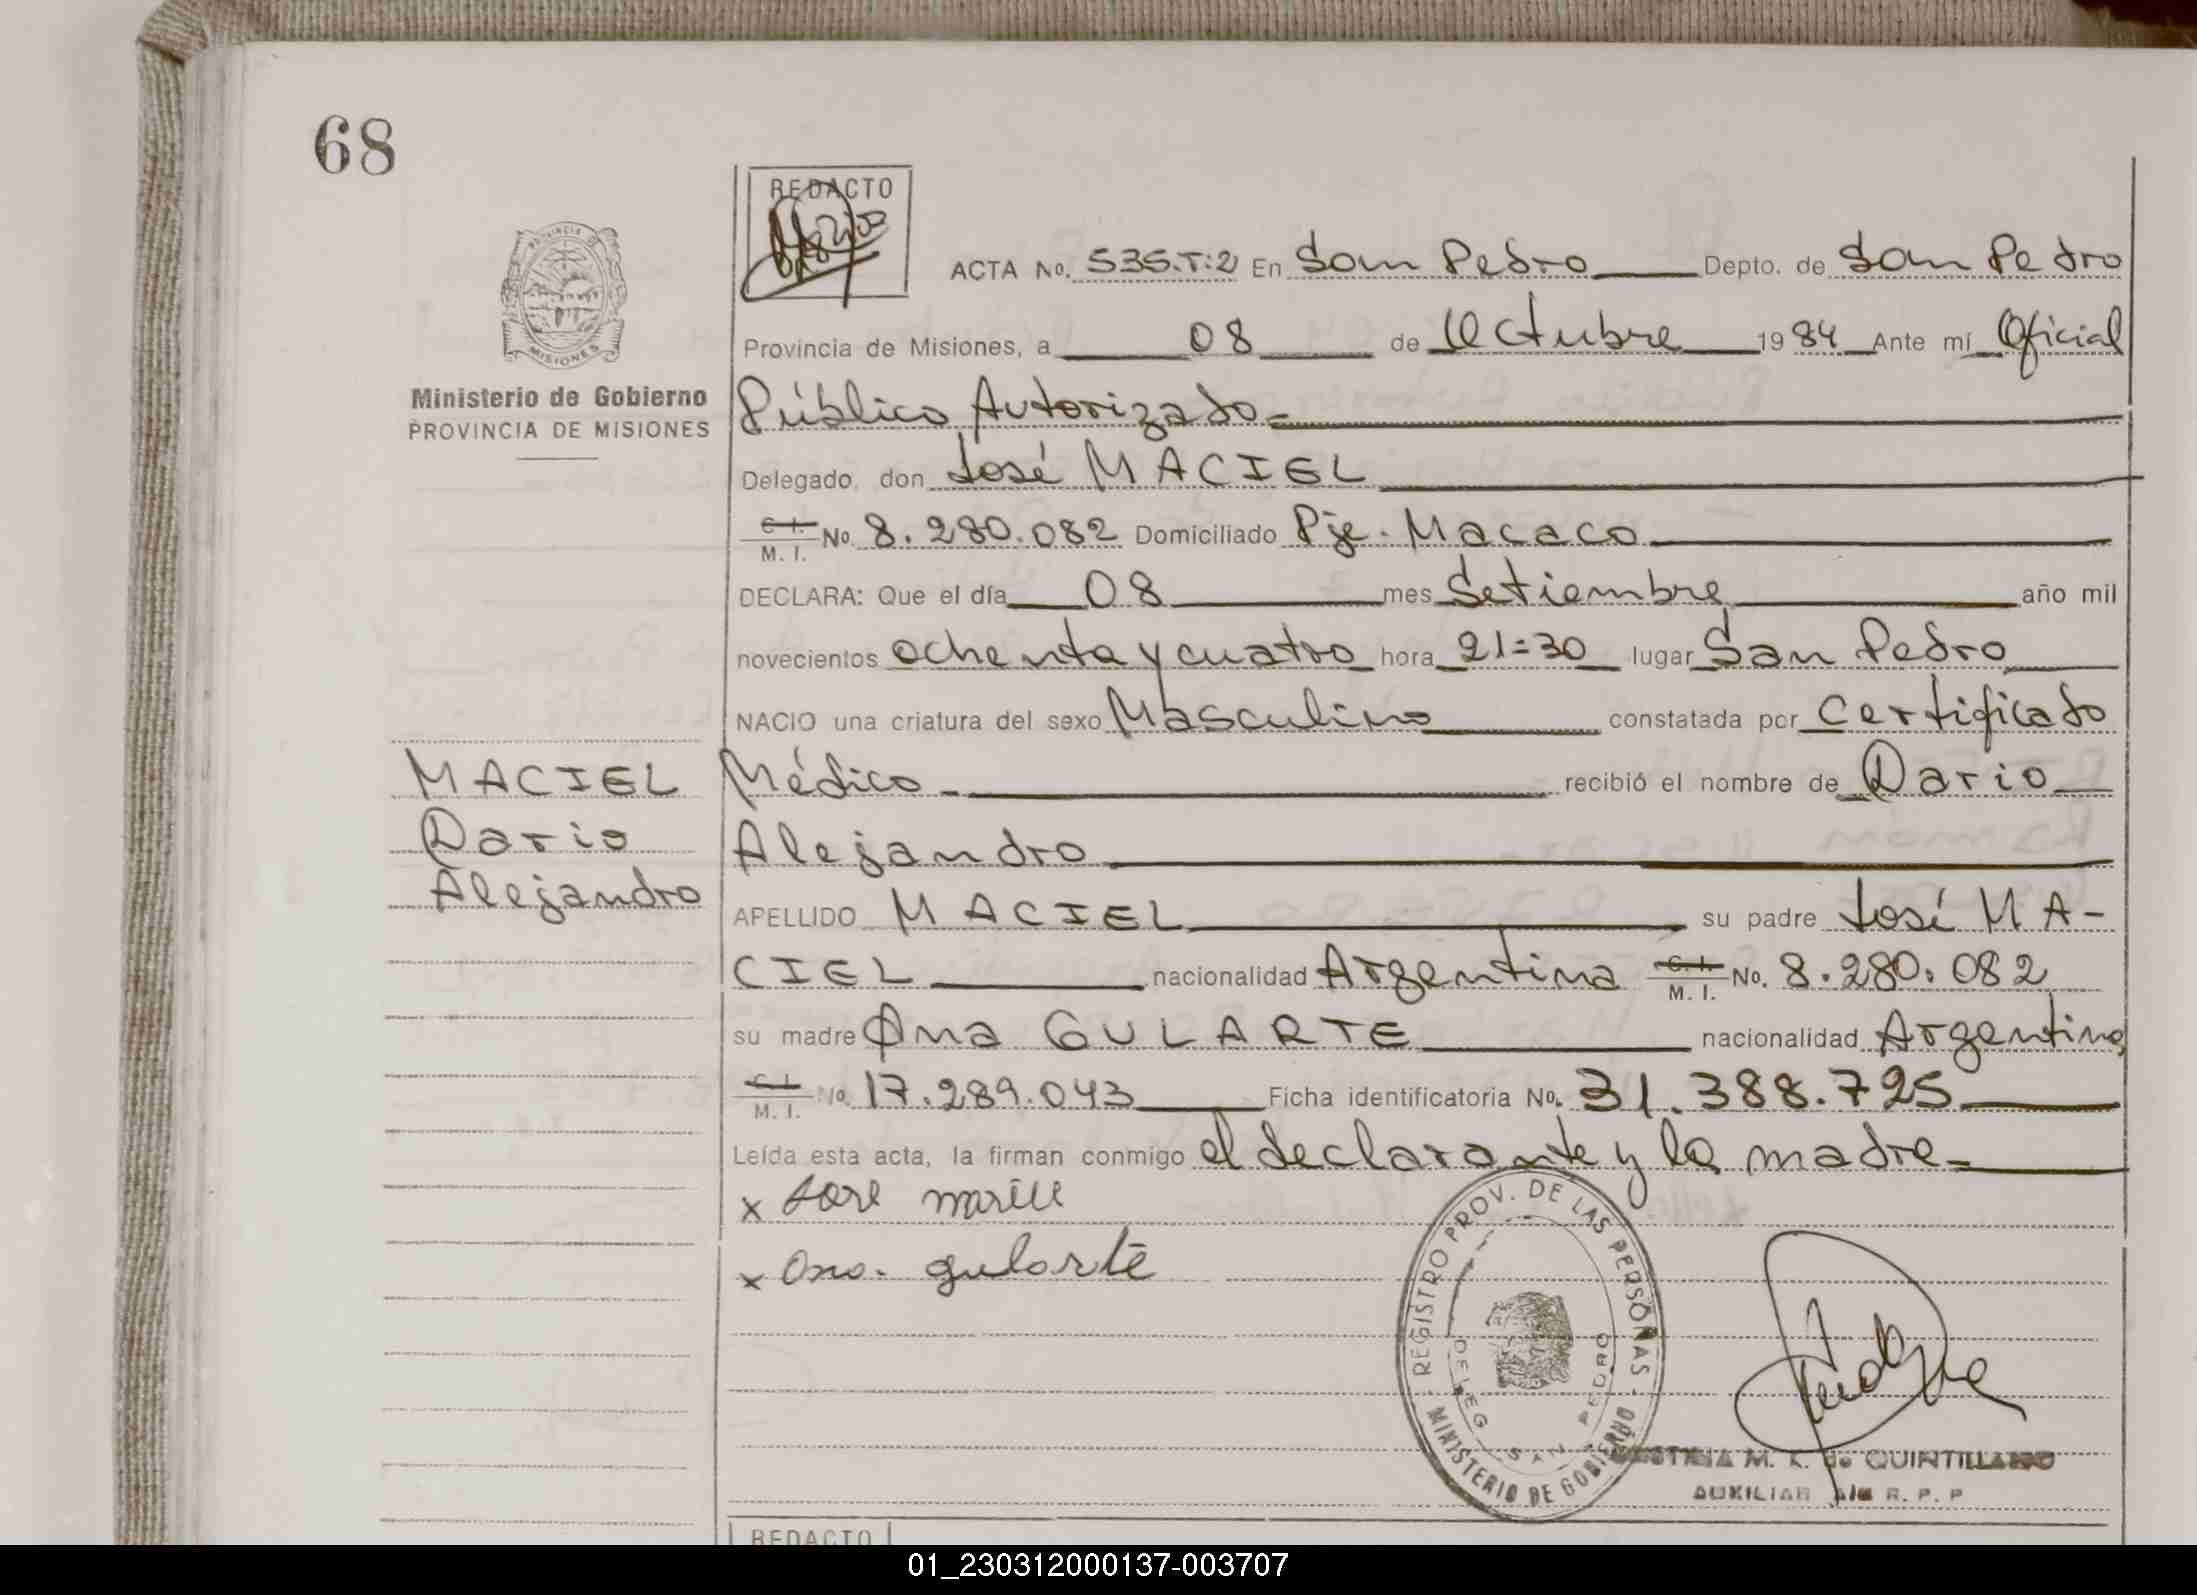 68
REDACTO
ACTA No. 535.T:2 En San Pedro Depto. de San Pedro
PROVINCIA DE
MISIONES
Provincia de Misiones, a 08 de Octubre 1984 Ante mí Oficial
Ministerio de Gobierno
PROVINCIA DE MISIONES
Público Autorizado
Delegado, don José MACIEL
C. I. M. I. No. 8.280.082 Domiciliado Pje. Macaco
DECLARA: Que el día 08 mes Setiembre año mil
novecientos ochenta y cuatro hora 21=30 lugar San Pedro
NACIO una criatura del sexo Masculino constatada por Certificado
MACIEL
Dario
Alejandro
Médico recibió el nombre de Dario
Alejandro
APELLIDO MACIEL su padre José MA-
CIEL nacionalidad Argentina C. I. M. I. No. 8.280.082
su madre Ana GULARTE nacionalidad Argentina
C. I. M. I. No. 17.289.043 Ficha identificatoria No. 31.388.725
Leída esta acta, la firman conmigo el declarante y la madre
x
x Ana. gularte
REGISTRO PROV. DE LAS PERSONAS
MINISTERIO DE GOBIERNO
DELEG SAN PEDRO
M. K. de QUINTILLANO
AUXILIAR R. P. P
REDACTO
01_230312000137-003707